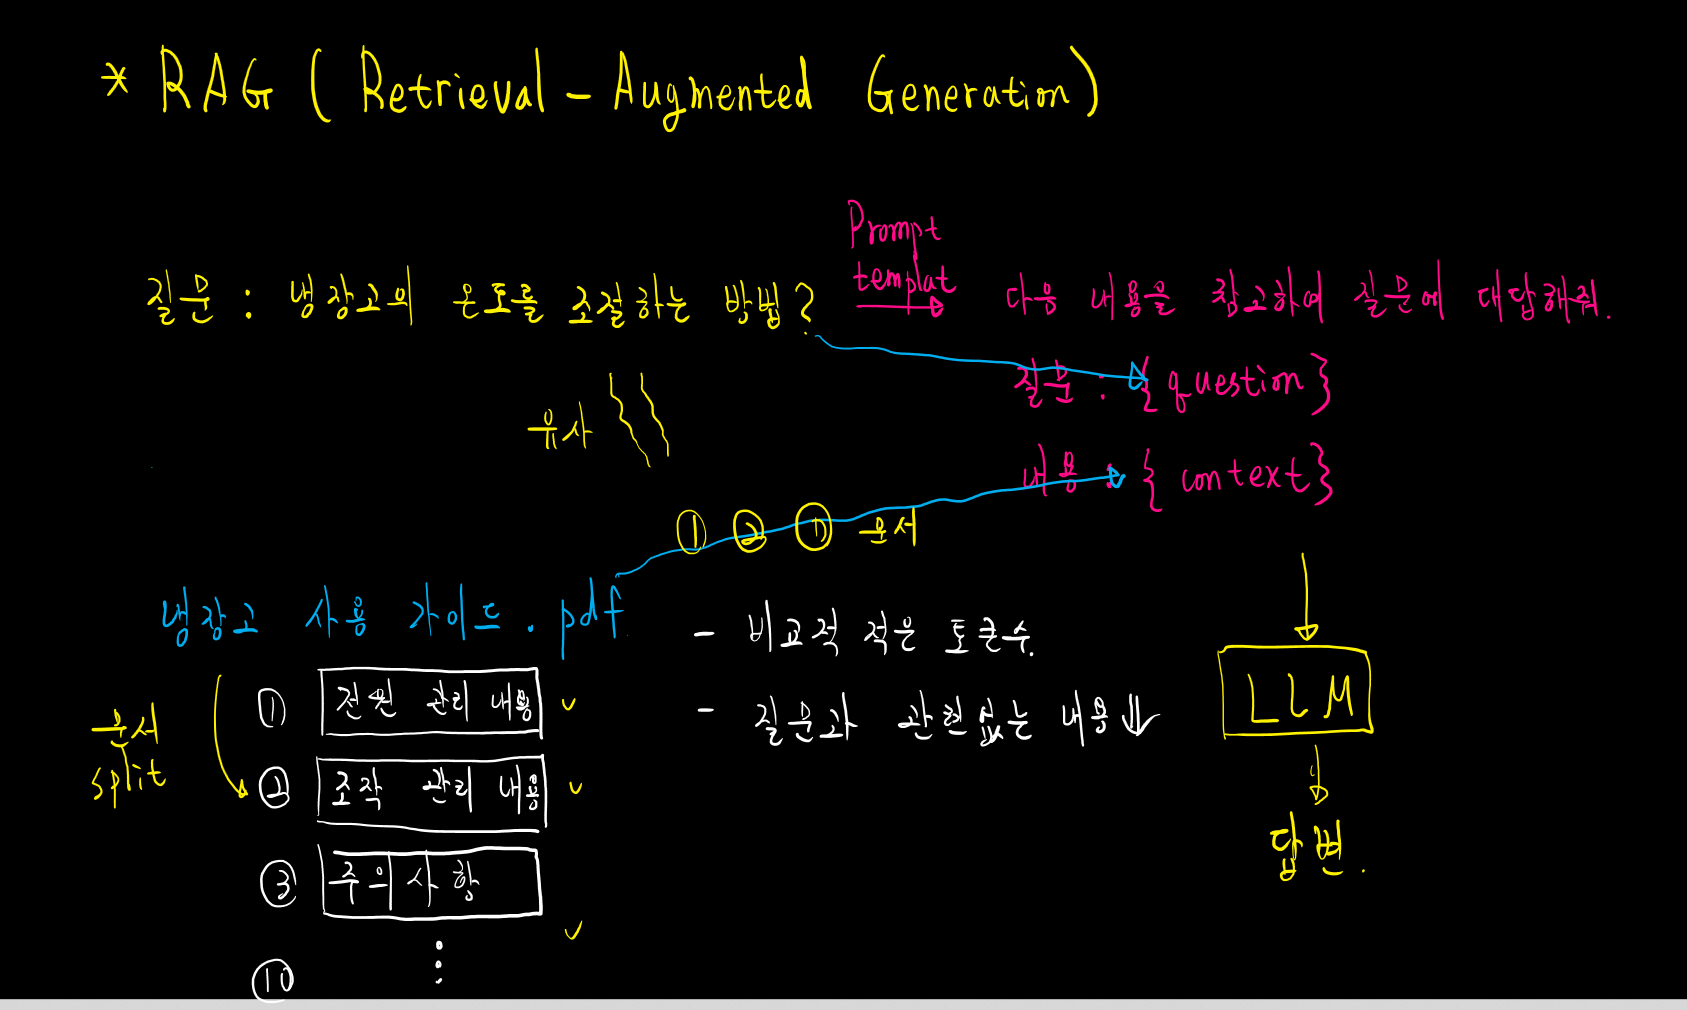 * RAG ( Retrieval - Augmented Generation )
Prompt
templat
질문 : 냉장고의 온도를 조절하는 방법?
다음 내용을 참고하여 질문에 대답해줘.
질문 : { question }
유사
내용 : { context }
① ② ⑦ 문서
냉장고 사용 가이드 . pdf
- 비교적 적은 토큰수.
- 질문과 관련없는 내용 ⇓
LLM
답변.
문서
split
① 전원 관리 내용 ✓
② 조작 관리 내용 ✓
③ 주의사항
✓
⋮
⑩